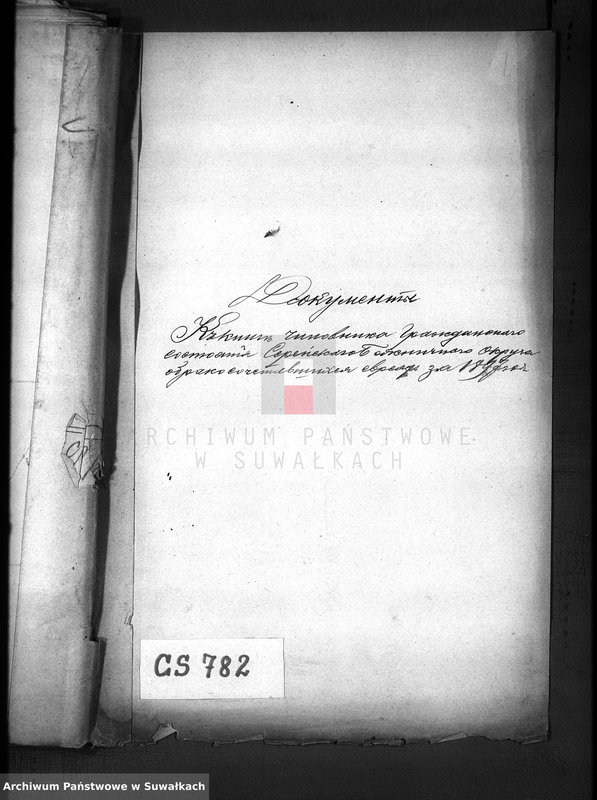 Документы
Къ книгѣ чиновника Гражданского
состоянія Божничного округа
бракосочетавшихся евреевъ за годъ
ARCHIWUM PAŃSTWOWE
W SUWAŁKACH
CS 782
Archiwum Państwowe w Suwałkach